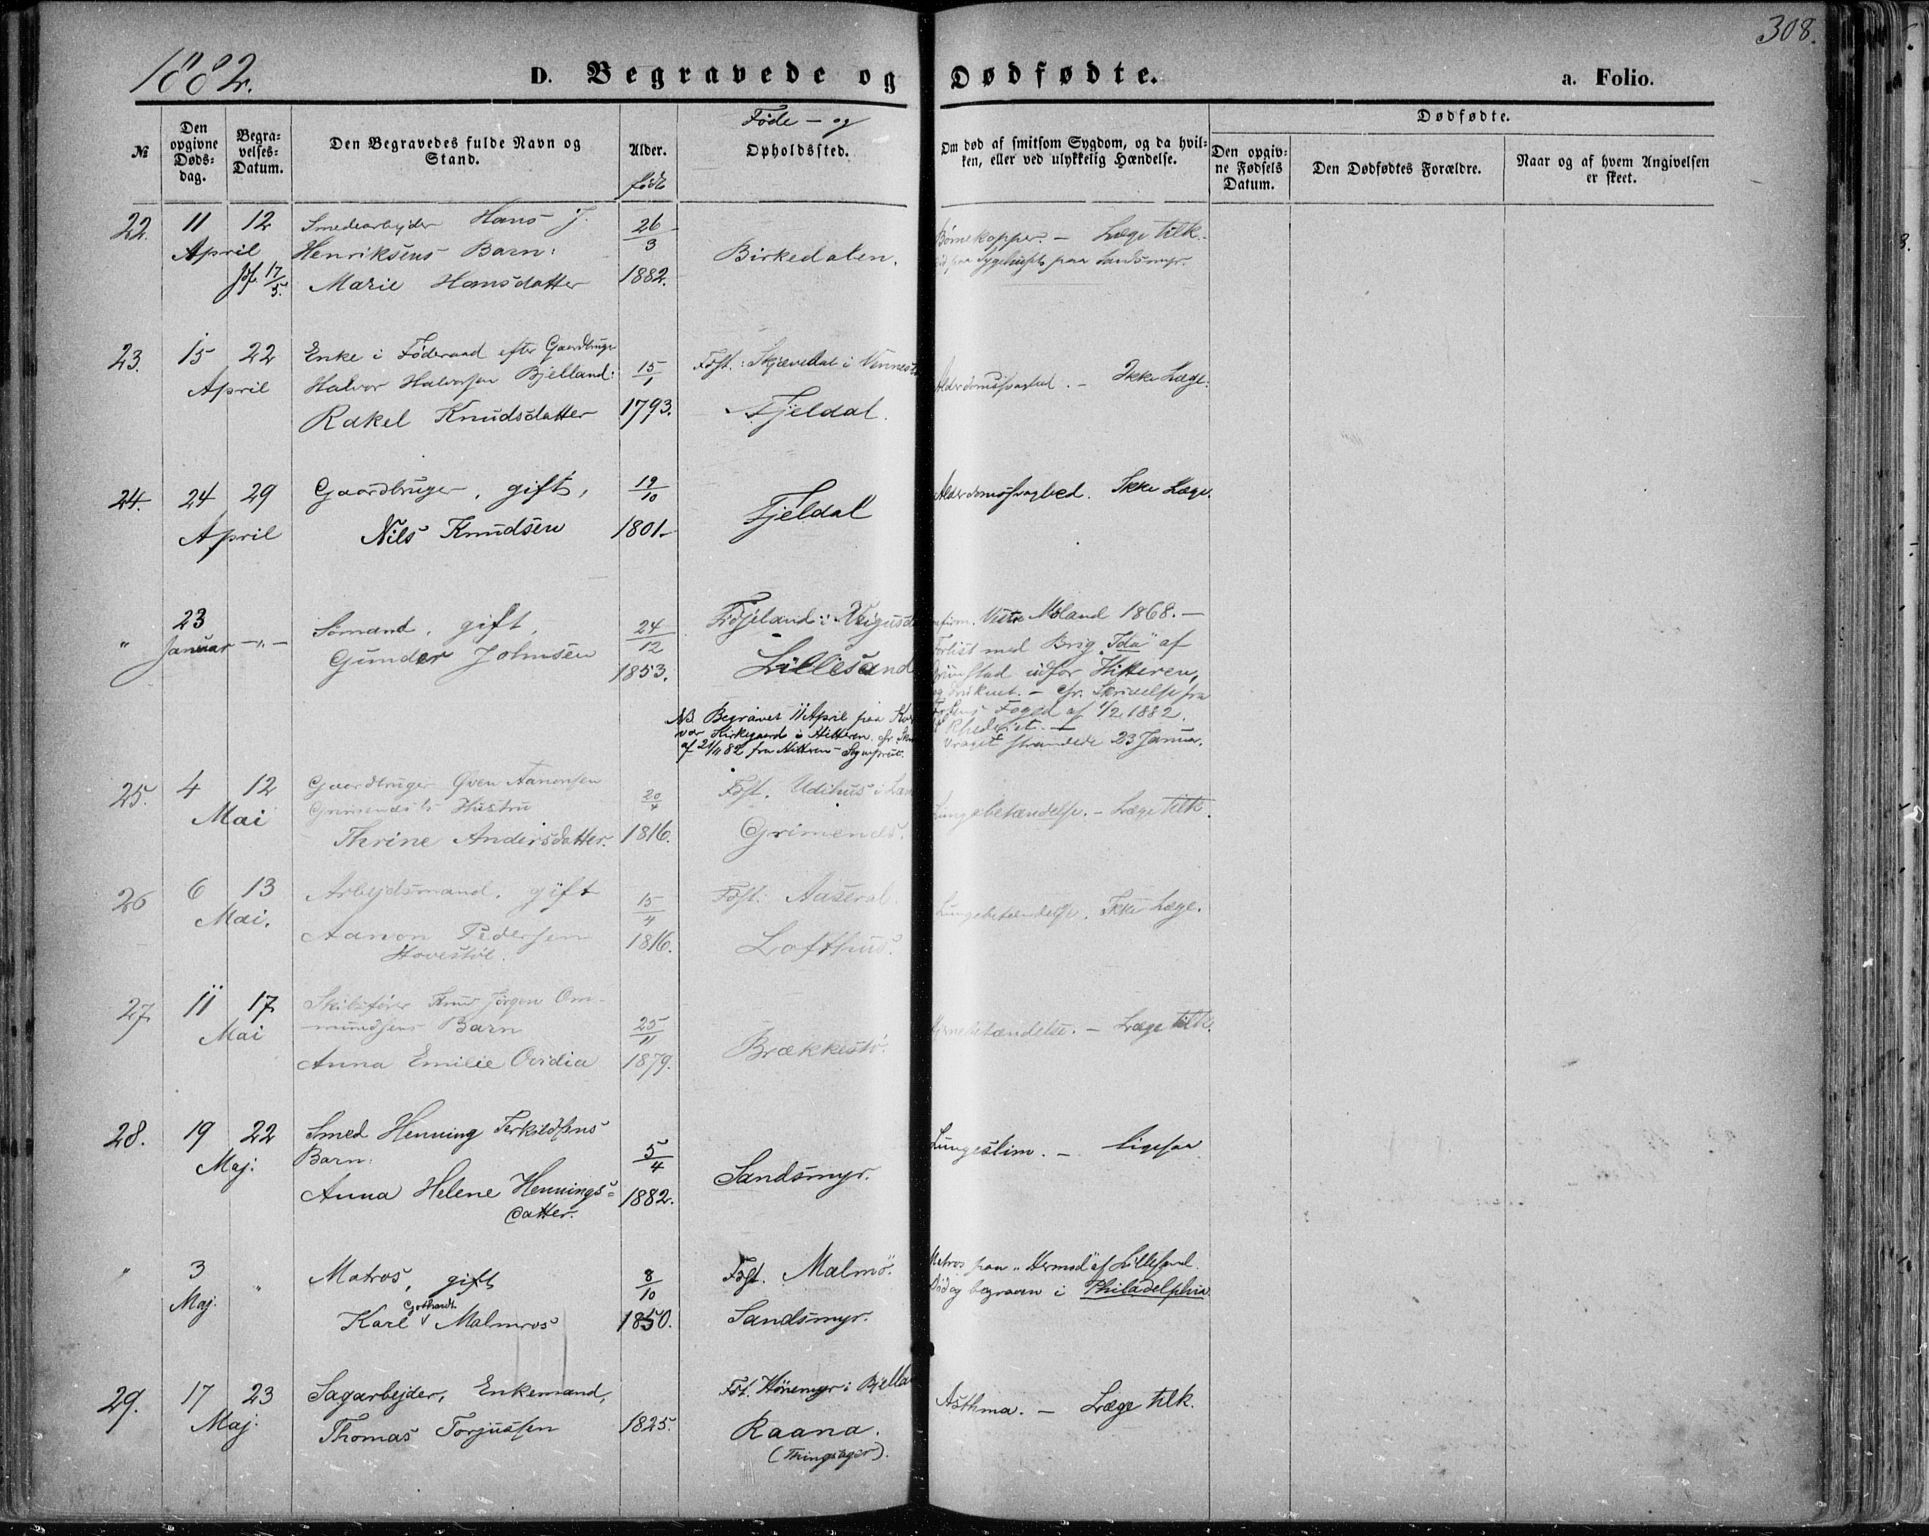 308.
1882.
D. Begravede og Dødfødte.
a. Folio.
№
Den opgivne Døds-dag.
Begra-velses-Datum.
Den Begravedes fulde Navn og Stand.
Alder.
født
Føde- og
Opholdssted.
Om død af smitsom Sygdom, og da hvil-
ken, eller ved ulykkelig Hændelse.
Dødfødte.
Den opgiv-
ne Fødsels
Datum.
Den Dødfødtes Forældre.
Naar og af hvem Angivelsen
er skeet.
22. 11 12 Smedearbejder Hans J. 26/3
April Henriksens Barn: Birkedalen. Børnekopper. - Læge tilk.
Jf. 17/5. Marie Hansdatter 1882. paa Sygehuset paa Sandsmyr.
23. 15 22 Enke i Føderaad efter Gaardbruger
April Halvor Halvorsen Bjelland: 15/1 Fdst.: Skjævedal i Vennesla Alderdomssvaghed. - Ikke Læge.
Rakel Knudsdatter 1793. Fjeldal.
24. 24 29 Gaardbruger, gift, 19/10 Alderdomssvaghed. Ikke Læge.
April Nils Knudsen 1801. Fjeldal
" 23
Januar -"- Sømand, gift, 24/12
Gunder Johnsen 1853. Lillesand
Vestre Moland 1868. -
Forlist med Brig "Ida" af
Grimstad udfor Hitteren,
og druknet. - cfr. Skrivelse fra
Foged af 1/2 1882.
Vraget strandede 23 Januar.
NB. Begravet 11 April paa
Kirkegaard i Hitteren. cfr.
af 21/11 82 fra Hitteren Sognepræst.
25. 4 12 Gaardbruger Even Aanonsen
Mai Grimenes's Hustru 20/4 Fdst. Udihus i Lan
Thrine Andersdatter. 1816. Grimenes. Lungebetændelse. - Læge tilk.
26 6 13 Arbejdsmand, gift 15/4 Fdst: Aaseral.
Mai. Aanon Pedersen 1816. Lofthus. Lungebetændelse. Ikke Læge.
Hovestøl.
27. 11 17 Skibsfører Knud Jørgen Om-
Mai mundsens Barn 25/11
Anna Emilie Ovidia 1879. Brækkestø. Hjernebetændelse. - Læge tilk.
28. 19 22 Smed Henning Terkildsens
Maj. Barn: 5/4 Lungeslim. - ligesaa
Anna Helene Hennings- 1882. Sandsmyr.
datter.
" 3 " Matros, gift 8/10 Fdst. Malmö. Matros paa "Hermod" af Lillesand.
Maj. Karl Gothardt Malmros 1850. Sandsmyr. Død og begraven i Philadelphia
29. 17 23 Sagarbejder, Enkemand, Fdt. Hønemyr i Bjella Asthma. - Læge tilk.
Maj. Thomas Torjussen 1825. Raana.
(Tingsager).